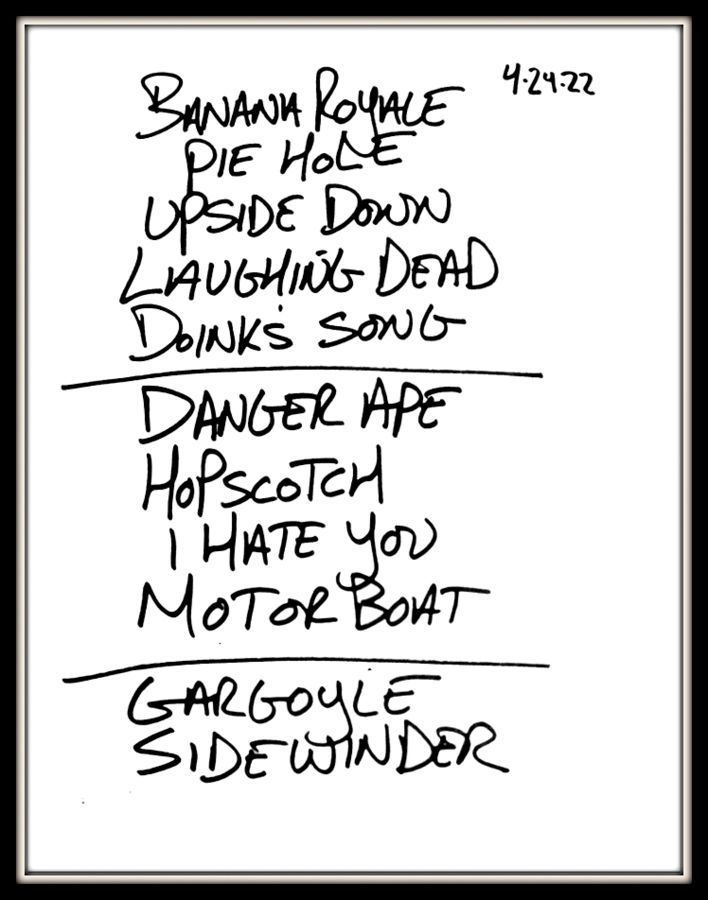 4.24.22
BANANA ROYALE
PIE HOLE
UPSIDE DOWN
LAUGHING DEAD
DOINK'S SONG
DANGER APE
HOPSCOTCH
I HATE YOU
MOTOR BOAT
GARGOYLE
SIDEWINDER